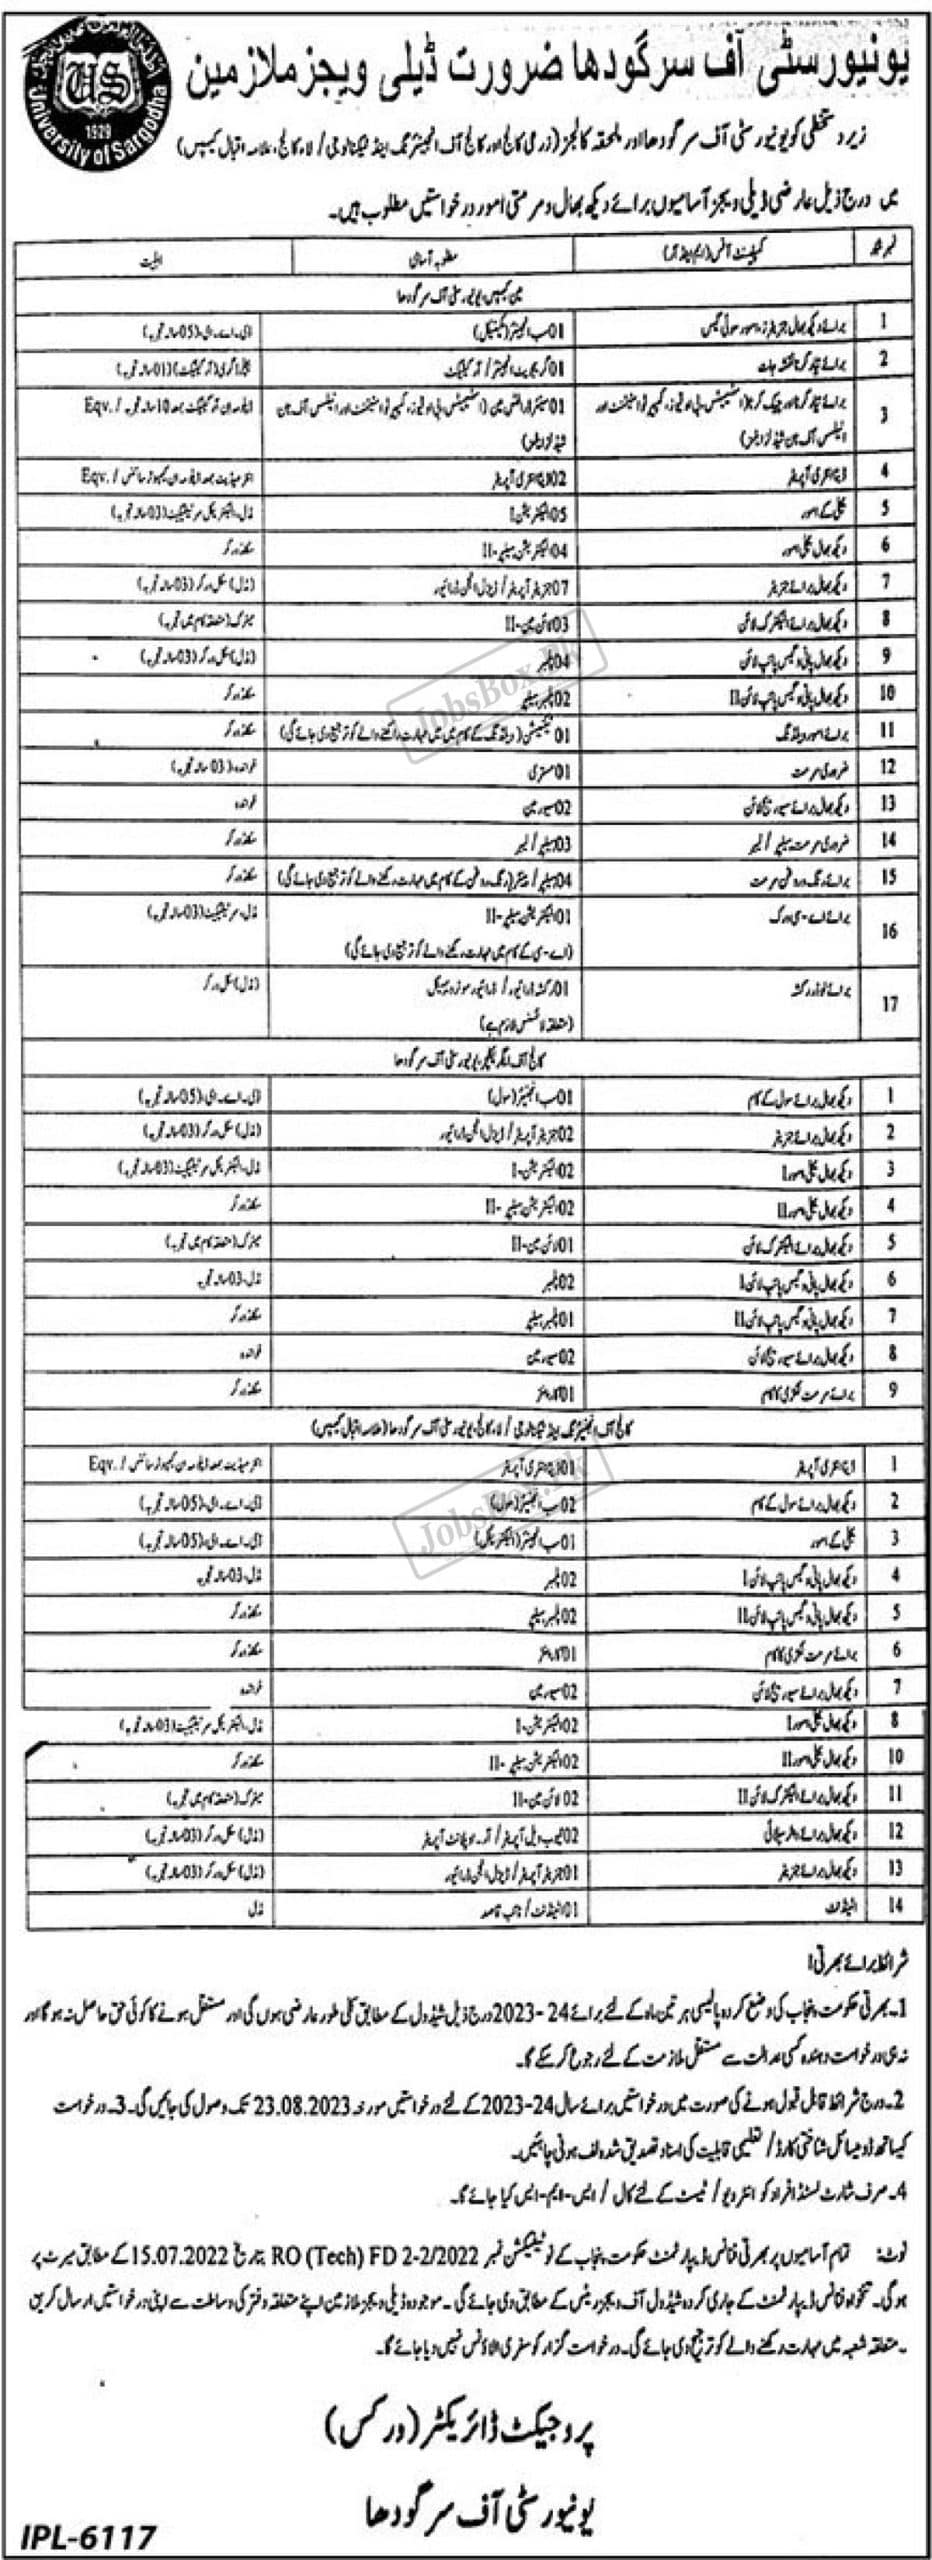 یونیورسٹی آف سرگودھا ضرورت ڈیلی ویجز ملازمین
University of Sargodha
US
1929
زیر دستخطی کو یونیورسٹی آف سرگودھا اور ملحقہ کالجز (زرعی کالج اور کالج آف انجینئرنگ اینڈ ٹیکنالوجی / لاء کالج، علامہ اقبال کیمپس)
میں درج ذیل عارضی ڈیلی ویجز آسامیوں برائے دیکھ بھال و مرمتی امور درخواستیں مطلوب ہیں۔
نمبر شمار کمپلینٹ آفس (ایم اینڈ آر) مطلوبہ آسامی اہلیت
مین کیمپس یونیورسٹی آف سرگودھا
1 برائے دیکھ بھال جنریٹرز، امور سوئی گیس 01 سب انجینئر (مکینیکل) ڈی۔اے۔ای، (05 سالہ تجربہ)
2 برائے تیار کرنا نقشہ جات 01 گریجویٹ انجینئر / آرکیٹیکٹ بیچلر ڈگری (آرکیٹیکٹ) (01 سالہ تجربہ)
3 برائے تیار کرنا اور چیک کرنا (اسٹیمیٹس، بی او کیوز، کمپیریٹو سٹیٹمنٹ اور
01 سینئر ڈرافٹس مین (اسٹیمیٹس، بی او کیوز، کمپیریٹو سٹیٹمنٹ اور
ڈپلومہ ان آرکیٹیکٹ بمعہ 10 سالہ تجربہ / Eqv.
4 ڈیٹا انٹری آپریٹر 02 ڈیٹا انٹری آپریٹر انٹرمیڈیٹ بمعہ ڈپلومہ ان کمپیوٹر سائنس / Eqv.
5 بجلی کے امور 05 الیکٹریشن-I مڈل، الیکٹریکل سرٹیفکیٹ (03 سالہ تجربہ)
6 دیکھ بھال بجلی امور 04 الیکٹریشن ہیلپر-II سکلڈ ورکر
7 دیکھ بھال برائے جنریٹر 07 جنریٹر آپریٹر / ڈیزل انجن ڈرائیور (مڈل) سکل ورکر (03 سالہ تجربہ)
8 دیکھ بھال برائے الیکٹرک لائن 03 لائن مین-II میٹرک (متعلقہ کام میں تجربہ)
9 دیکھ بھال پانی و گیس پائپ لائن 04 پلمبر (مڈل) سکل ورکر (03 سالہ تجربہ)
10 دیکھ بھال پانی و گیس پائپ لائن II 02 پلمبر ہیلپر سکلڈ ورکر
11 برائے امور ویلڈنگ 01 ٹیکنیشن (ویلڈنگ کے کام میں مہارت رکھنے والے کو ترجیح دی جائے گی) سکلڈ ورکر
12 ضروری مرمت 01 مستری خواندہ (03 سالہ تجربہ)
13 دیکھ بھال برائے سیوریج لائن 02 سیورمین خواندہ
14 ضروری مرمت ہیلپر / لیبر 03 ہیلپر / لیبر سکلڈ ورکر
15 برائے رنگ و روغن مرمت 04 ہیلپر / پینٹر (رنگ روغن کے کام میں مہارت رکھنے والے کو ترجیح دی جائے گی) سکلڈ ورکر
16 برائے اے-سی ورک 01 الیکٹریشن ہیلپر-II مڈل، سرٹیفکیٹ (03 سالہ تجربہ)
(اے-سی کے کام میں مہارت رکھنے والے کو ترجیح دی جائے گی)
17 برائے لوڈر رکشہ 01 رکشہ ڈرائیور / ڈرائیور موٹر وہیکل (مڈل) سکل ورکر
(متعلقہ لائسنس لازم ہے)
کالج آف ایگریکلچر یونیورسٹی آف سرگودھا
1 دیکھ بھال برائے سول کے کام 01 سب انجینئر (سول) ڈی۔اے۔ای، (05 سالہ تجربہ)
2 دیکھ بھال برائے جنریٹر 02 جنریٹر آپریٹر / ڈیزل انجن ڈرائیور (مڈل) سکل ورکر (03 سالہ تجربہ)
3 دیکھ بھال بجلی امور I 02 الیکٹریشن-I مڈل، الیکٹریکل سرٹیفکیٹ (03 سالہ تجربہ)
4 دیکھ بھال بجلی امور II 02 الیکٹریشن ہیلپر-II سکلڈ ورکر
5 دیکھ بھال برائے الیکٹرک لائن 01 لائن مین-II میٹرک (متعلقہ کام میں تجربہ)
6 دیکھ بھال پانی و گیس پائپ لائن I 02 پلمبر مڈل، 03 سالہ تجربہ
7 دیکھ بھال پانی و گیس پائپ لائن II 01 پلمبر ہیلپر سکلڈ ورکر
8 دیکھ بھال برائے سیوریج لائن 02 سیورمین خواندہ
9 برائے مرمت لکڑی کا کام 01 کارپینٹر سکلڈ ورکر
کالج آف انجینئرنگ اینڈ ٹیکنالوجی / لاء کالج، یونیورسٹی آف سرگودھا (علامہ اقبال کیمپس)
1 ڈیٹا انٹری آپریٹر 01 ڈیٹا انٹری آپریٹر انٹرمیڈیٹ بمعہ ڈپلومہ ان کمپیوٹر سائنس / Eqv.
2 دیکھ بھال برائے سول کے کام 02 سب انجینئر (سول) ڈی۔اے۔ای، (05 سالہ تجربہ)
3 بجلی کے امور 01 سب انجینئر (الیکٹریکل) ڈی۔اے۔ای، (05 سالہ تجربہ)
4 دیکھ بھال پانی و گیس پائپ لائن I 02 پلمبر مڈل، 03 سالہ تجربہ
5 دیکھ بھال پانی و گیس پائپ لائن II 02 پلمبر ہیلپر سکلڈ ورکر
6 برائے مرمت لکڑی کا کام 01 کارپینٹر سکلڈ ورکر
7 دیکھ بھال برائے سیوریج لائن 02 سیورمین خواندہ
8 دیکھ بھال بجلی امور I 02 الیکٹریشن-I مڈل، الیکٹریکل سرٹیفکیٹ (03 سالہ تجربہ)
10 دیکھ بھال بجلی امور II 02 الیکٹریشن ہیلپر-II سکلڈ ورکر
11 دیکھ بھال برائے الیکٹرک لائن II 02 لائن مین-II میٹرک (متعلقہ کام میں تجربہ)
12 دیکھ بھال برائے واٹر سپلائی 02 ٹیوب ویل آپریٹر / آر۔او پلانٹ آپریٹر (مڈل) سکل ورکر (03 سالہ تجربہ)
13 دیکھ بھال برائے جنریٹر 01 جنریٹر آپریٹر / ڈیزل انجن ڈرائیور (مڈل) سکل ورکر (03 سالہ تجربہ)
14 اٹینڈنٹ 01 اٹینڈنٹ / نائب قاصد مڈل
شرائط برائے بھرتی:
1۔ بھرتی حکومت پنجاب کی وضع کردہ پالیسی ہر تین ماہ کے لئے برائے 24-2023 درج ذیل شیڈول کے مطابق کلی طور عارضی ہوں گی اور مستقل ہونے کا کوئی حق حاصل نہ ہوگا اور
نہ ہی درخواست دہندہ کسی عدالت سے مستقل ملازمت کے لئے رجوع کر سکے گا۔
2۔ درج شرائط قابل قبول ہونے کی صورت میں درخواستیں برائے سال 24-2023 کے لئے درخواستیں مورخہ 23.08.2023 تک وصول کی جائیں گی۔ 3۔ درخواست
کیساتھ ڈومیسائل شناختی کارڈ / تعلیمی قابلیت کی اسناد تصدیق شدہ لف ہونی چاہئیں۔
4۔ صرف شارٹ لسٹڈ افراد کو انٹرویو / ٹیسٹ کے لئے کال / ایس-ایم-ایس کیا جائے گا۔
نوٹ: تمام آسامیوں پر بھرتی فنانس ڈیپارٹمنٹ حکومت پنجاب کے نوٹیفکیشن نمبر RO (Tech) FD 2-2/2022 بتاریخ 15.07.2022 کے مطابق میرٹ پر
ہوگی۔ تنخواہ فنانس ڈیپارٹمنٹ کے جاری کردہ شیڈول آف ویجز ریٹس کے مطابق دی جائے گی۔ موجودہ ڈیلی ویجز ملازمین اپنے متعلقہ دفتر کی وساطت سے اپنی درخواستیں ارسال کریں
۔ متعلقہ شعبہ میں مہارت رکھنے والے کو ترجیح دی جائے گی۔ درخواست گزار کو سفری الاؤنس نہیں دیا جائے گا۔
پروجیکٹ ڈائریکٹر (ورکس)
یونیورسٹی آف سرگودھا
IPL-6117
JobsBox.Pk
JobsBox.Pk